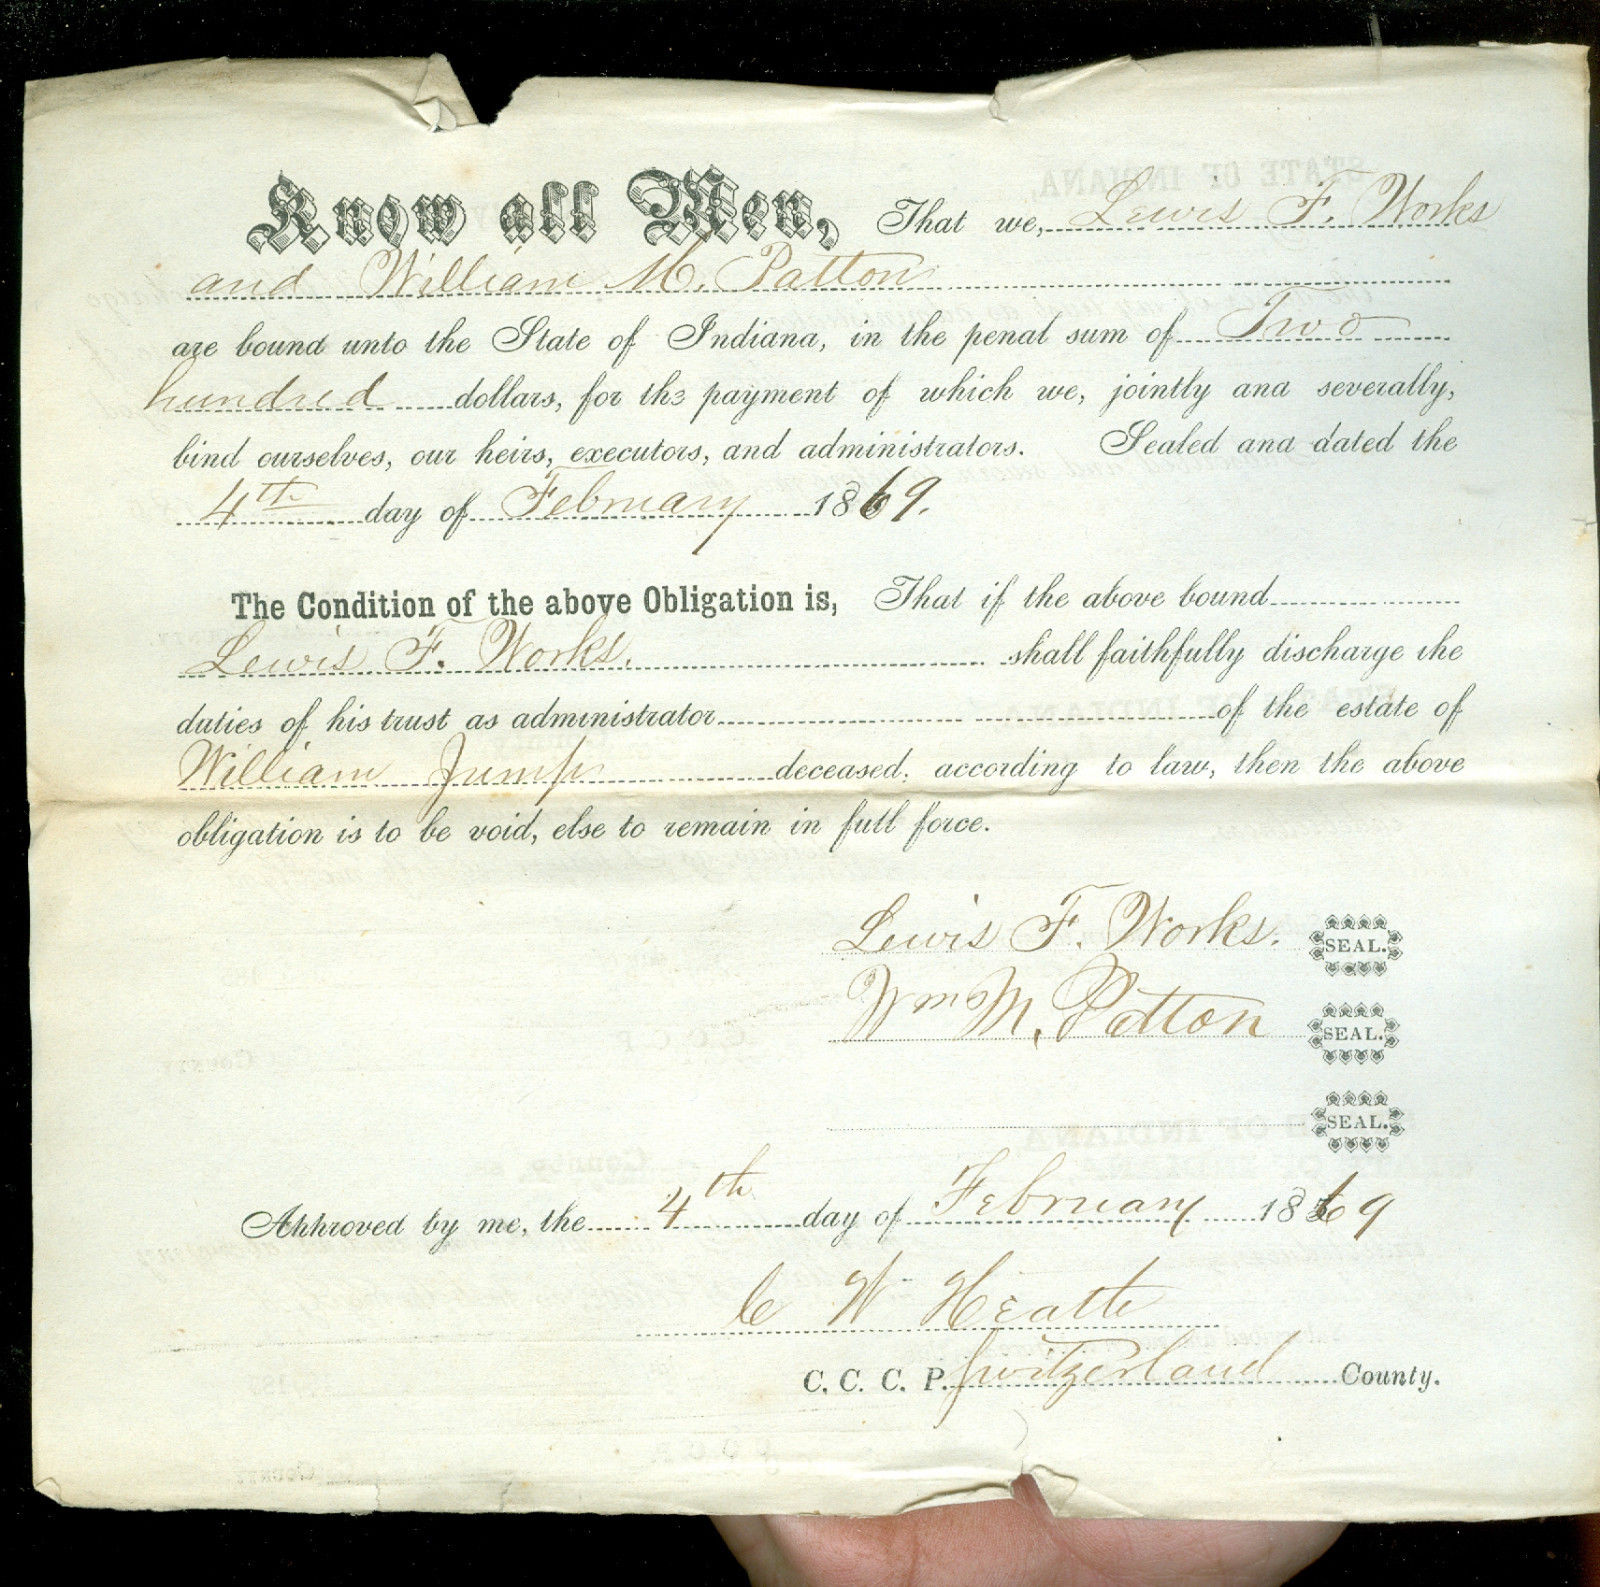 Know all Men, That we, Lewis F. Works
and William M. Patton
are bound unto the State of Indiana, in the penal sum of Two
hundred dollars, for the payment of which we, jointly and severally,
bind ourselves, our heirs, executors, and administrators. Sealed and dated the
4th day of February 1869.
The Condition of the above Obligation is, That if the above bound
Lewis F. Works. shall faithfully discharge the
duties of his trust as administrator of the estate of
William Jump deceased, according to law, then the above
obligation is to be void, else to remain in full force.
Lewis F. Works. SEAL.
Wm M. Patton SEAL.
SEAL.
Approved by me, the 4th day of February 1869
C W Heath
C. C. C. P. Switzerland County.